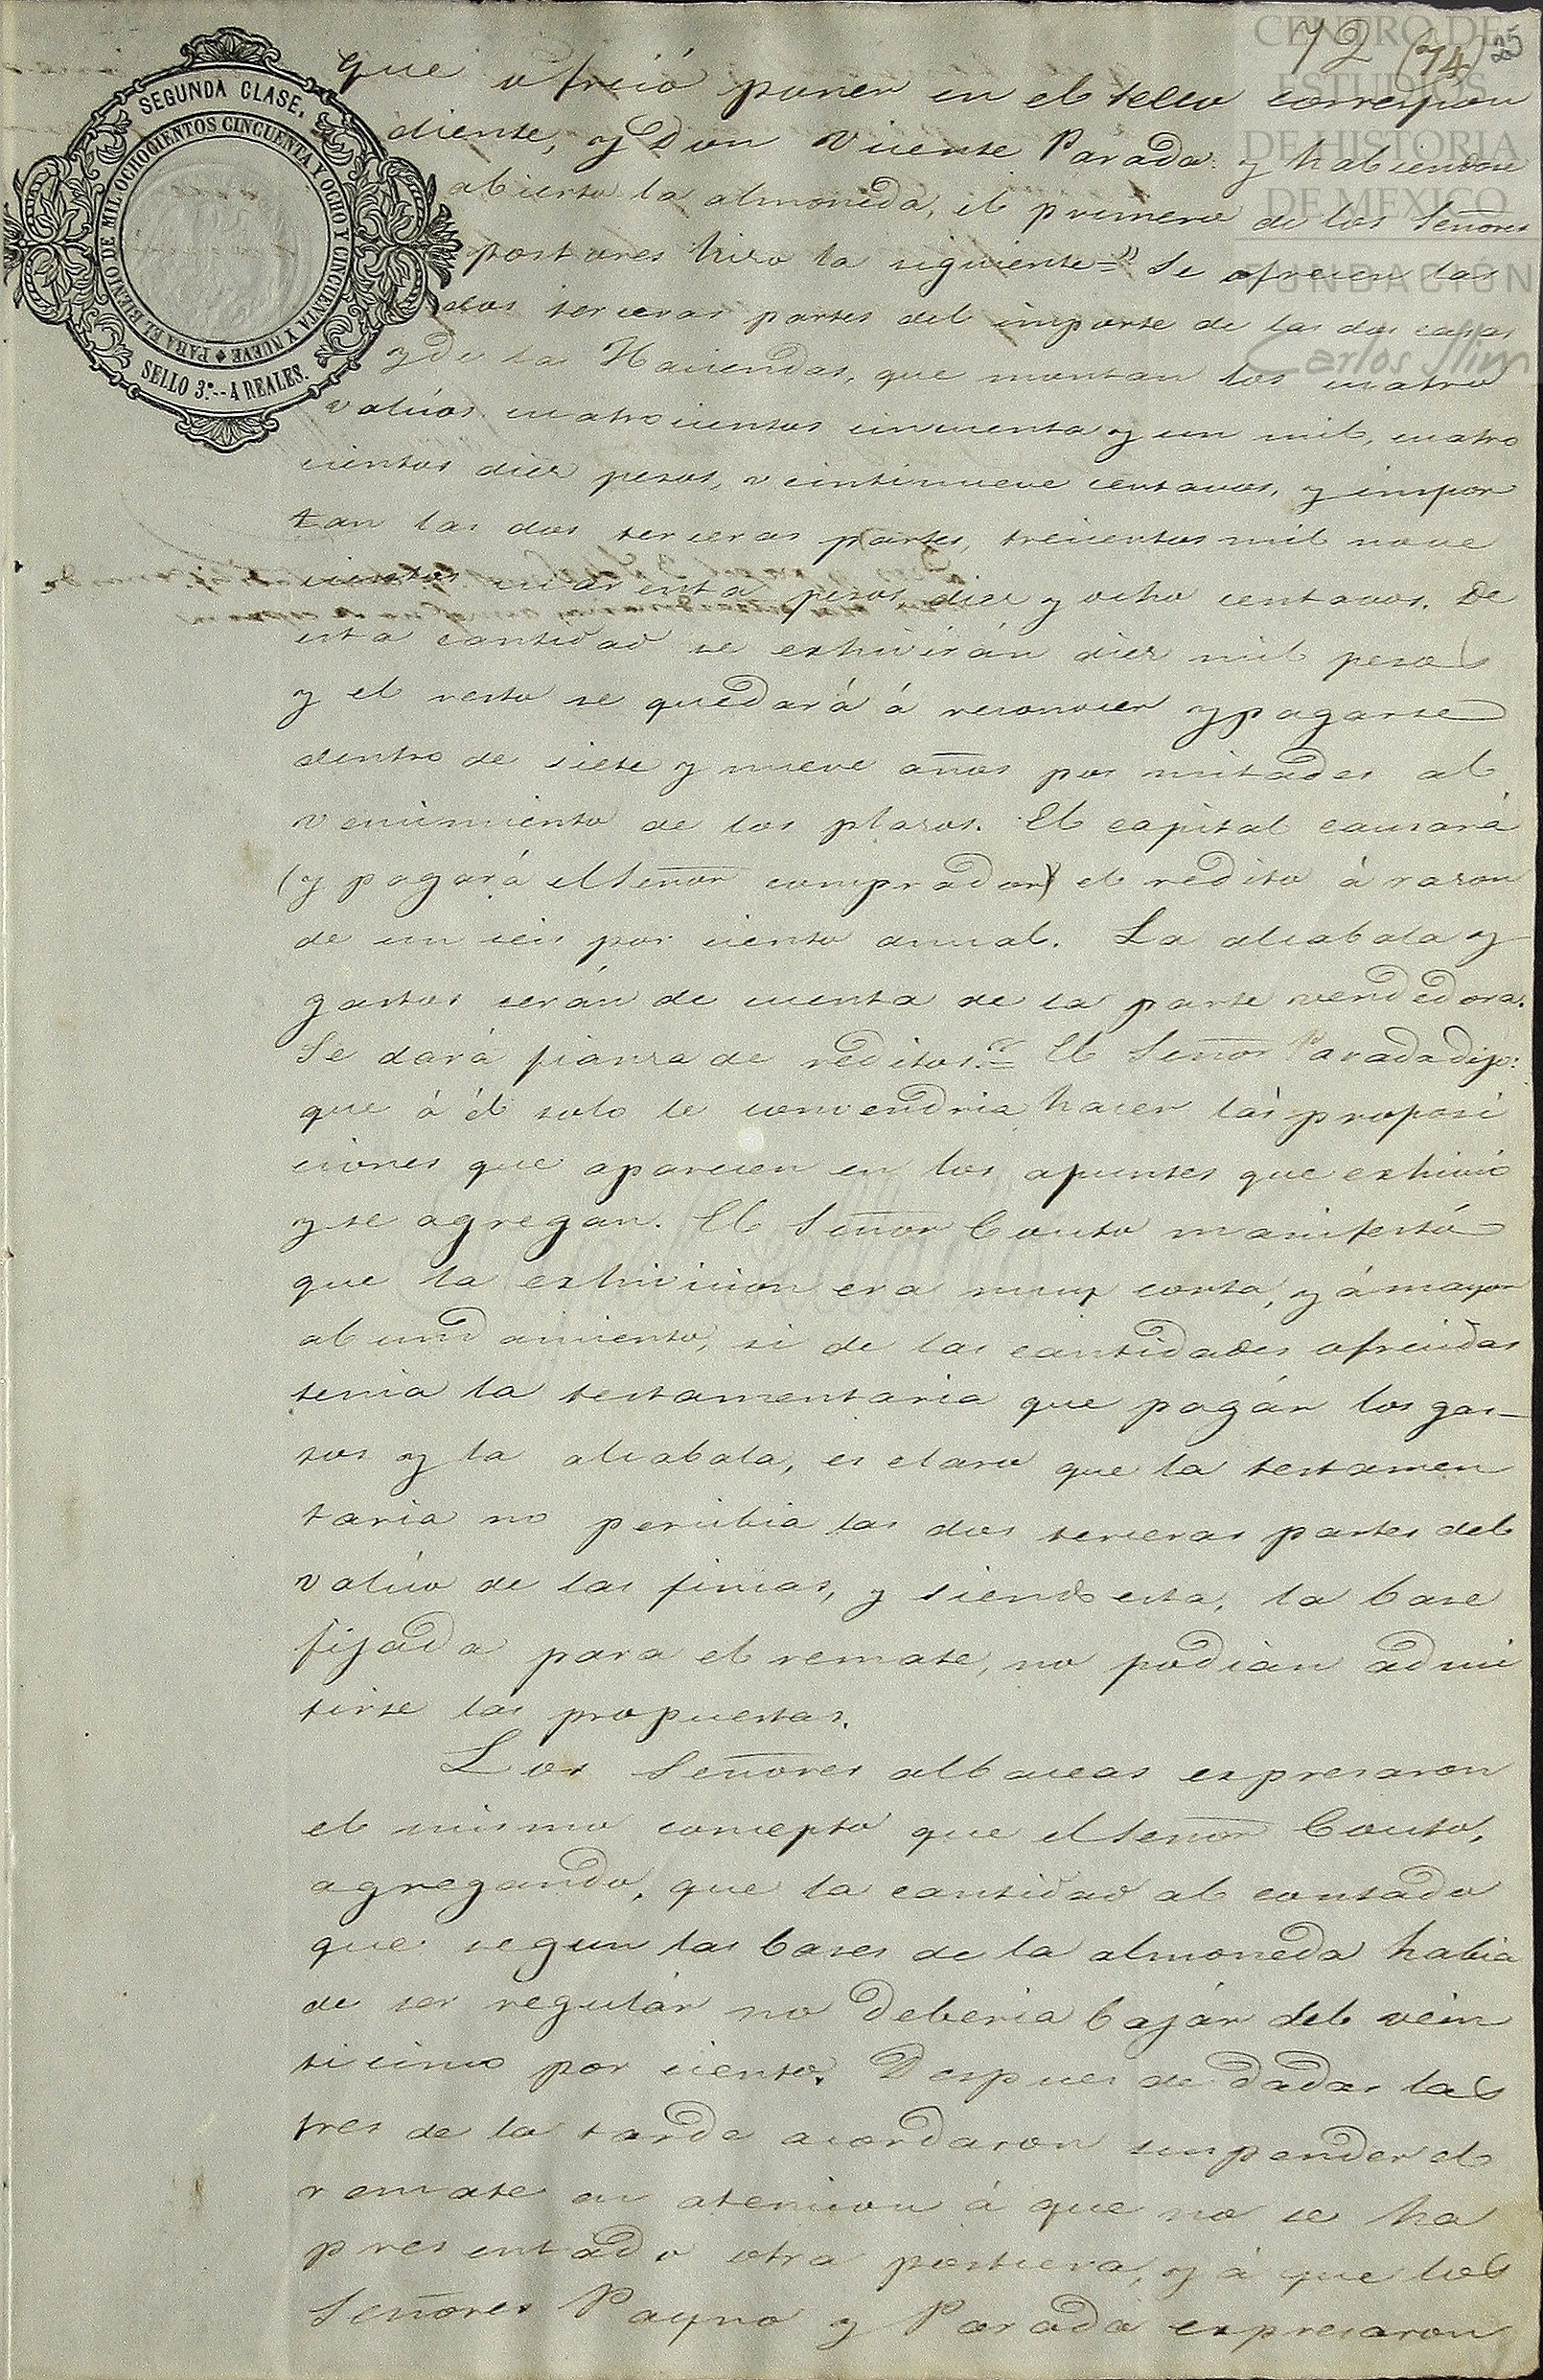 CENTRO DE
ESTUDIOS
DE HISTORIA
DE MEXICO
FUNDACIÓN
Carlos Slim
72 (74) 25
SEGUNDA CLASE.
PARA EL BIENIO DE MIL OCHOCIENTOS CINCUENTA Y OCHO Y CINCUENTA Y NUEVE
SELLO 3º.--4 REALES.
que ofreció poner en el sello correspon
diente, y Don Vicente Parada: y habiendose
abierto la almoneda, el primero de los Señores
postores hizo la siguiente=" Se ofrecen las
dos terceras partes del importe de las dos casas
y de las Haciendas, que montan los cuatro
valúos cuatrocientos cincuenta y un mil, cuatro
cientos diez pesos, veintinueve centavos, y impor
tan las dos terceras partes, trecientos mil nove
cientos cuarenta pesos diez y ocho centavos. De
esta cantidad se exhivirán diez mil pesos
y el resto se quedará á reconocer y pagarse
dentro de siete y nueve años por mitades al
vencimiento de los plazos. El capital causará
(y pagará el Señor comprador) el redito á razon
de un seis por ciento anual. La alcabala y
gastos serán de cuenta de la parte vendedora.
Se dará fianza de reditos."= El Señor Parada dijo:
que á él solo le convendria hacer las proposi
ciones que aparecen en los apuntes que exhivió
y se agregan. El Señor Couto manifestó
que la exhivicion era muy corta, y á mayor
abundamiento, si de las cantidades ofrecidas
tenia la testamentaria que pagár los gas-
tos y la alcabala, es claro que la testamen
taria no percibia las dos terceras partes del
valúo de las fincas, y siendo esta, la base
fijada para el remate, no podian admi
tirse las propuestas.
Los Señores albaceas expresaron
el mismo concepto que el Señor Couto,
agregando, que la cantidad al contado
que segun las bases de la almoneda habia
de ser regulár no deberia bajár del vein
ticinco por ciento. Despues de dadas las
tres de la tarde acordaron suspender el
remate en atencion á que no se ha
presentado otra postura, y á que los
Señores Payno y Parada expresaron